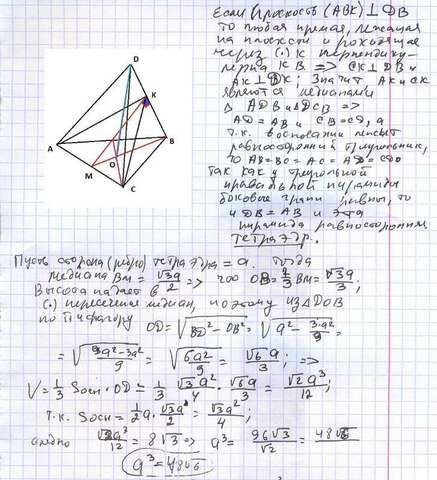 D
K
A
B
O
M
C
Если плоскость (АВК) ⊥ DB
то любая прямая, лежащая
на плоскости и проходящая
через (·) К перпендику-
лярна КВ => CK⊥DB и
АК⊥ ; Значит АК и СК
являются медианами
Δ ADB и ΔDCB =>
AD = AB и CB = CD, а
т.к. в основании лежит
равносторонний треугольник,
то AB=BC=AC=AD=CD
так как у треугольной
правильной пирамиды
боковые грани равны, то
и DB = AB и эта
пирамида равносторонняя
тетраэдр.
Пусть сторона (ребро) тетраэдра = a. Тогда
медиана BM = √3a/2 => OB = 2/3 BM = √3a/3;
Высота падает в
(·) пересечения медиан, поэтому из ΔDOB
по Пифагору OD = √(BD² - OB²) = √(a² - 3·a²/9) =
= √((9a² - 3a²)/9) = √(6a²/9) = √6a/3; =>
V = 1/3 Sосн · OD = 1/3 · √3a²/4 · √6a/3 = √2a³/12;
т.к. Sосн = 1/2 a · √3a/2 = √3a²/4;
√2a³/12 = 8√3 => a³ = 96√3/√2 = 48√6
a³ = 48√6